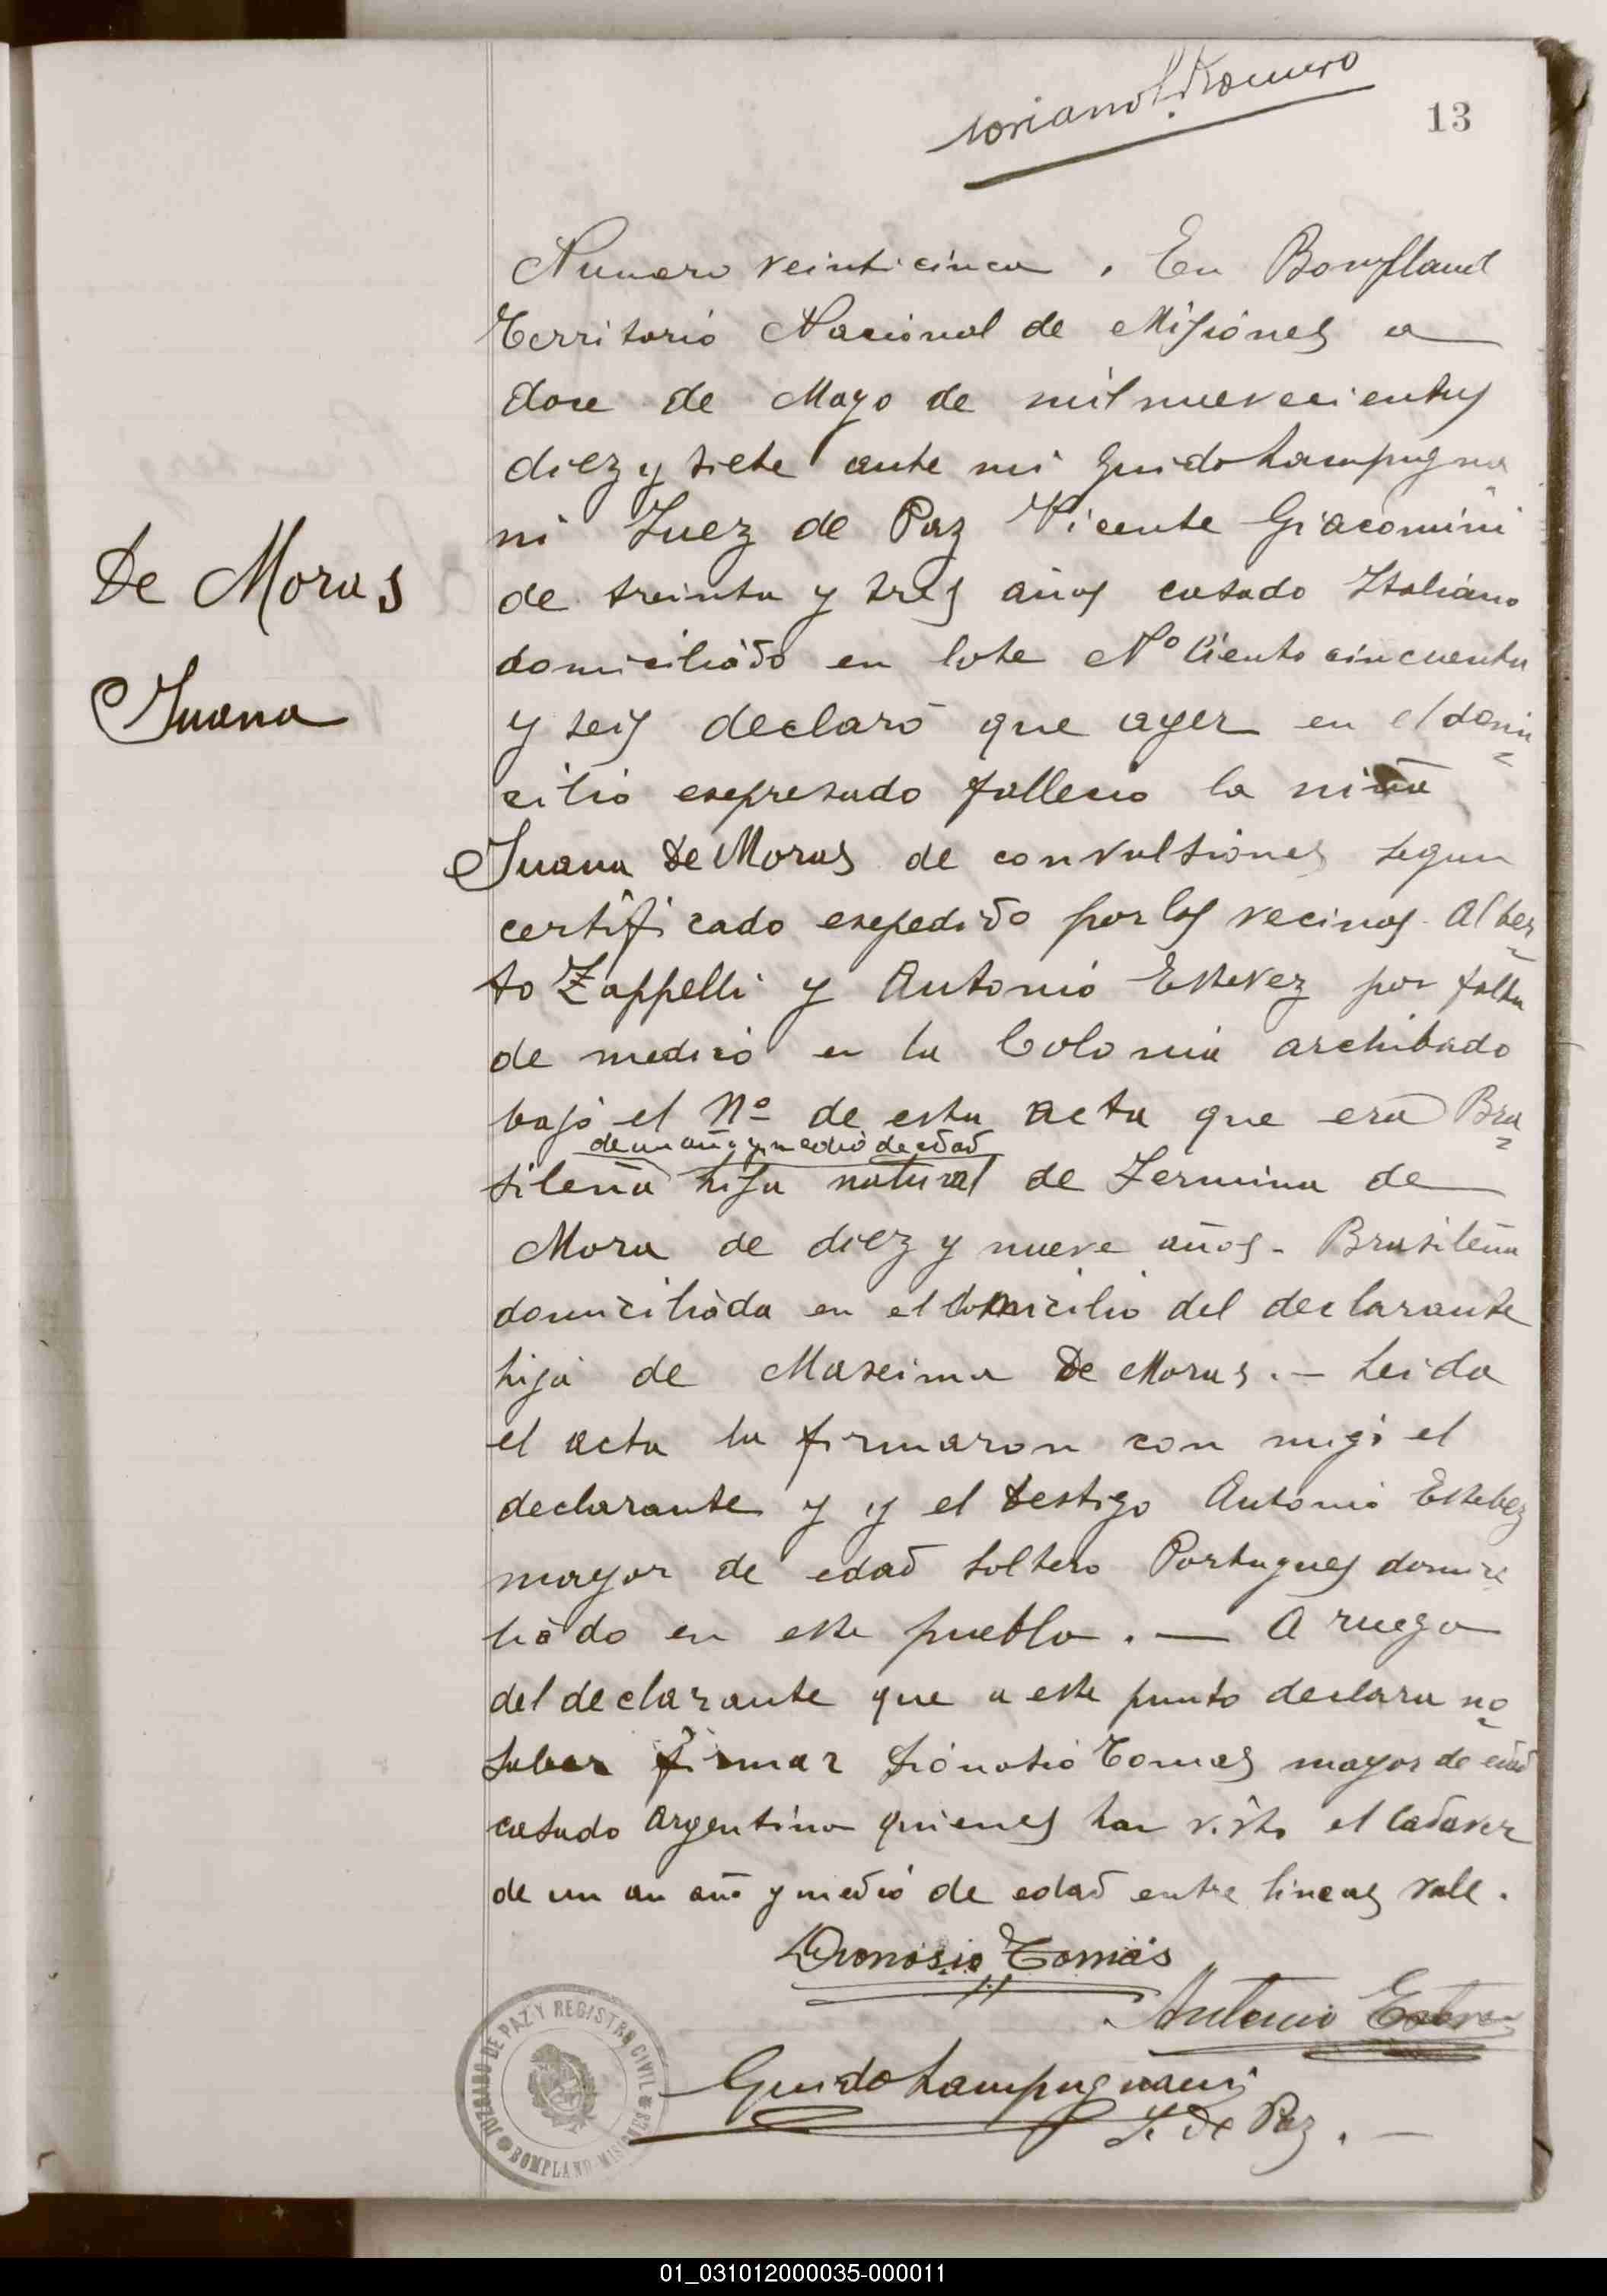 Romero
13
Numero veinticinco. En Bompland
Territorio Nacional de Misiones a
doce de Mayo de mil nuevecientos
diez y siete ante mi Guido Lampugna
ni Juez de Paz Vicente Giacomini
de treinta y tres años casado Italiano
domiciliado en lote Nº Ciento cincuenta
y seis declaró que ayer en el domi-
cilio expresado fallecio la niña
De Moras
Juana
Juana De Moras de convulsiones segun
certificado expedido por los vecinos Alber-
to Zappelli y Antonio Estevez por falta
de medico en la Colonia archibado
bajo el Nº de esta acta que era Bra-
de un año y medio de edad
sileña hija natural de Zermina de
Mora de diez y nueve años - Brasileña
domiciliada en el domicilio del declarante
hija de Maxima De Moras. - Leida
el acta la firmaron con migo el
declarante y y el testigo Antonio Estebez
mayor de edad soltero Portugues domici
liado en este pueblo. — A ruego
del declarante que a este punto declara no
saber firmar Tomas mayor de edad
casado Argentino quienes han visto el cadaver
de un an año y medio de edad entre lineas vale.
Dionosio Tomás
Antonio Estevez
Guido Lampugnani
J. de Paz. -
JUZGADO DE PAZ Y REGISTRO CIVIL
BOMPLAND MISIONES
01_031012000035-000011